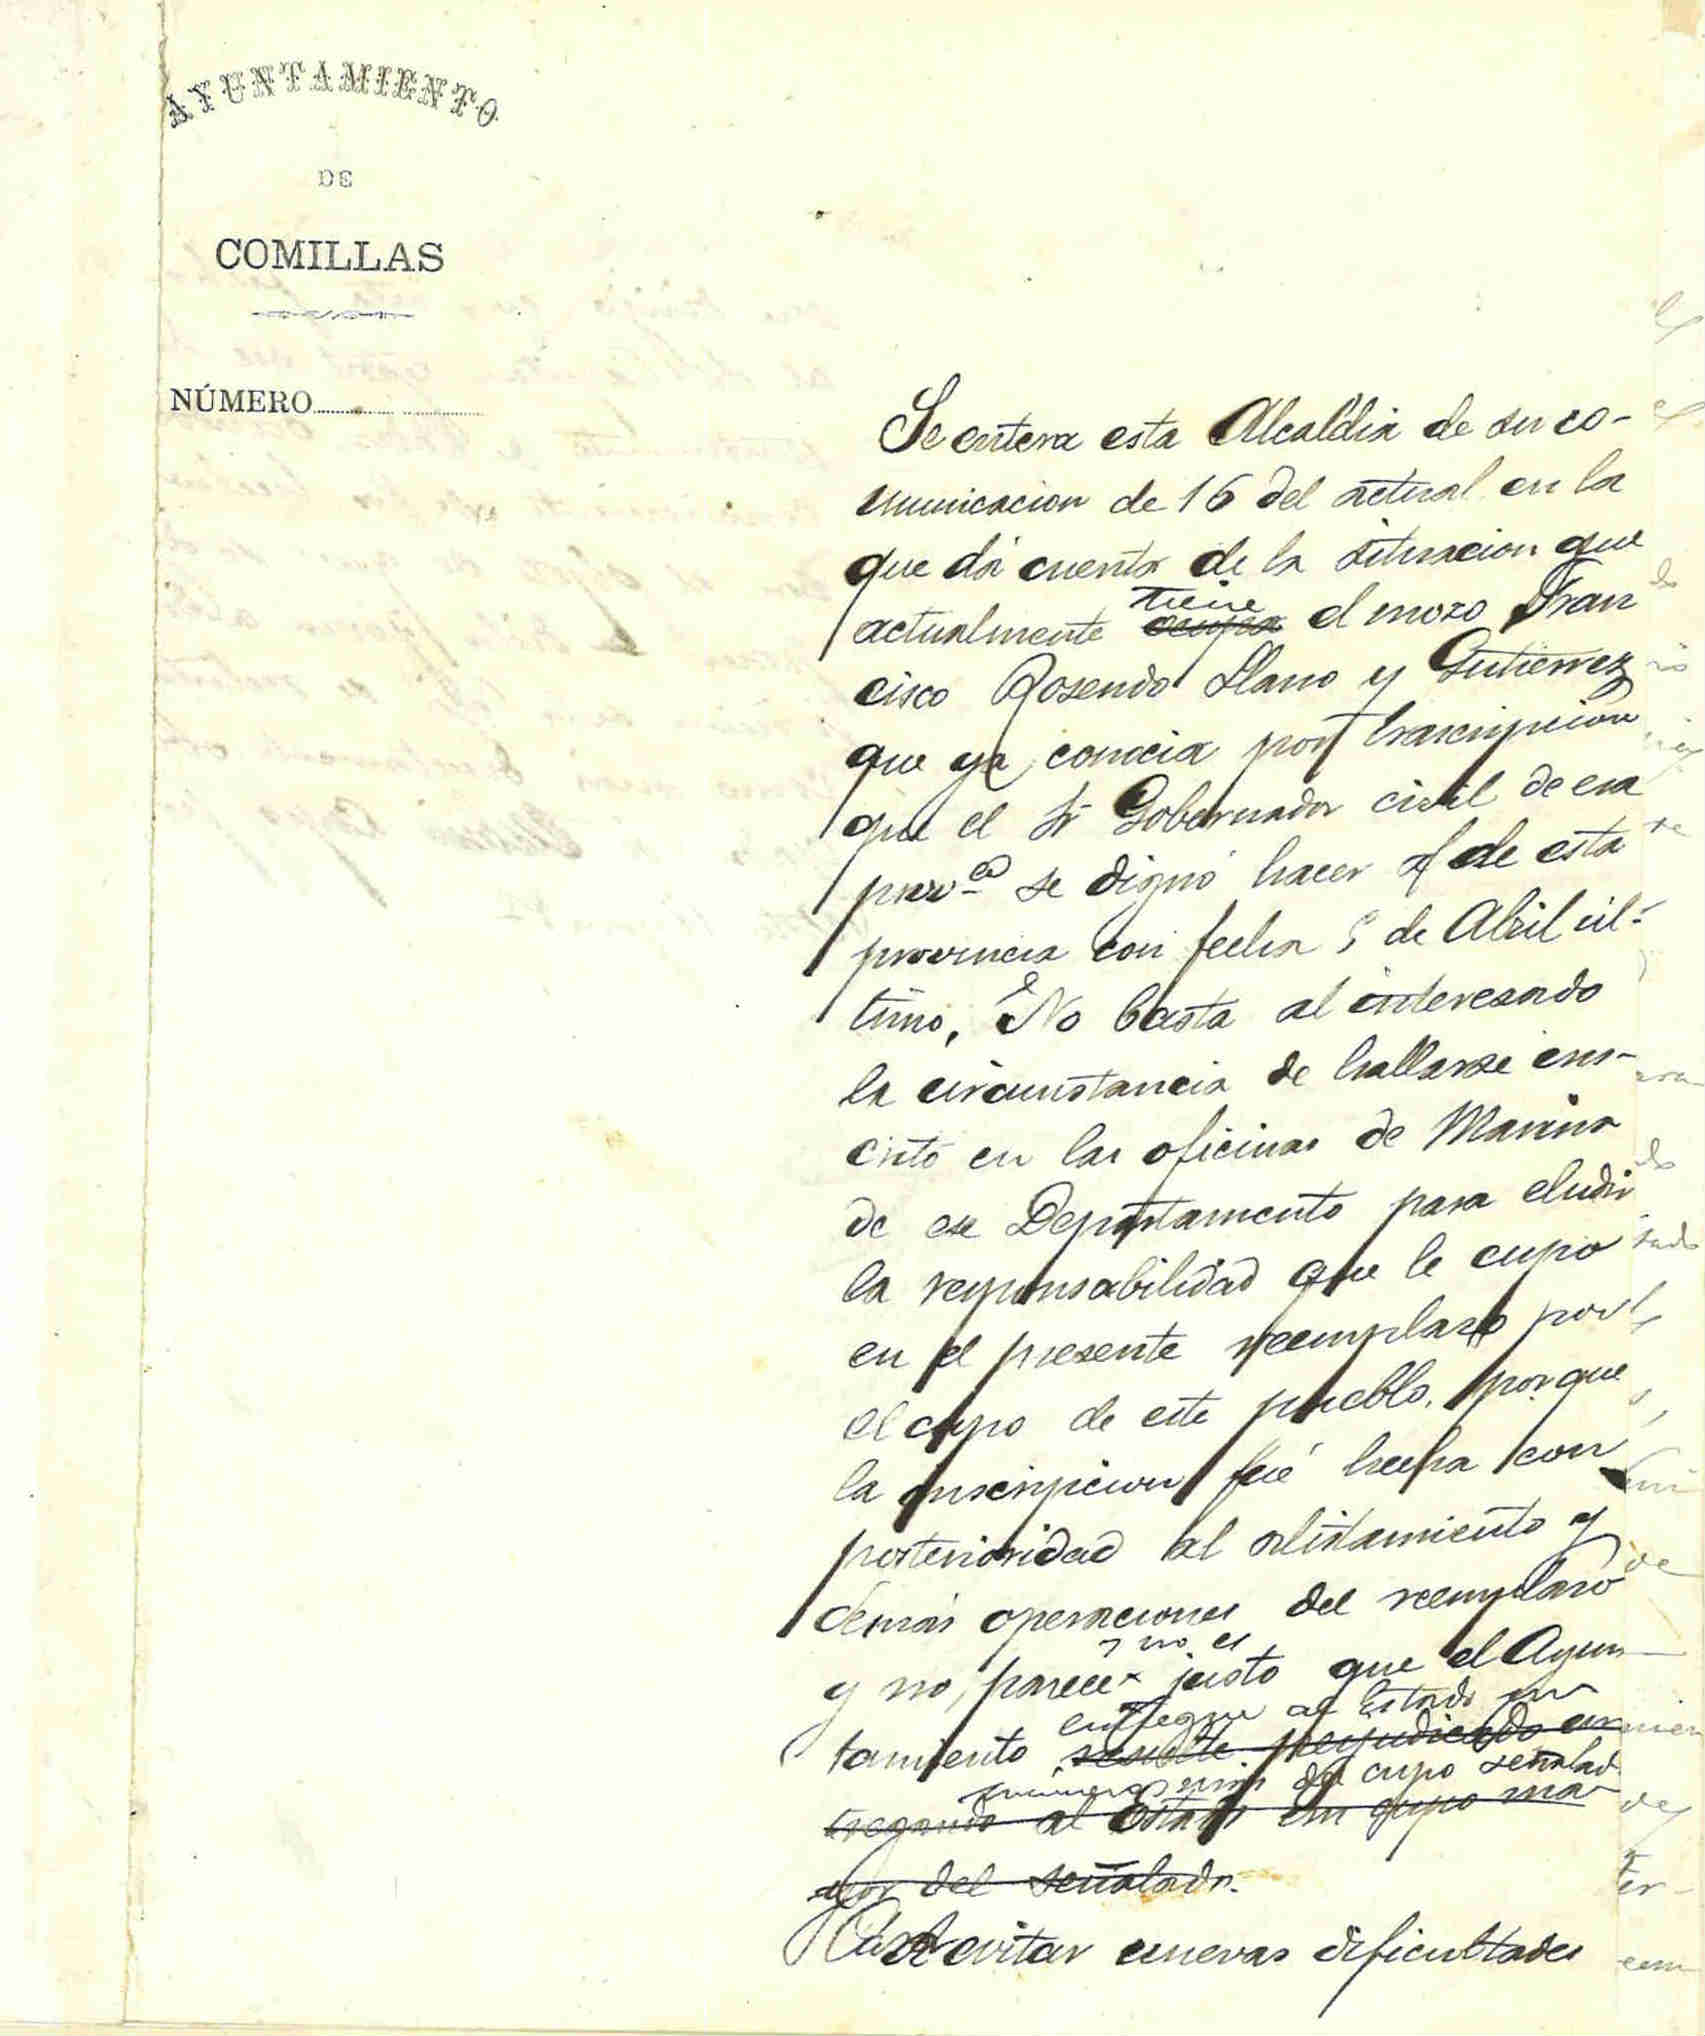 AYUNTAMIENTO
DE
COMILLAS
NÚMERO
Se entera esta Alcaldia de su co-
municacion de 16 del actual en la
que dá cuenta de la situacion que
tiene
actualmente ocupa el mozo Fran
cisco Rosendo Llano y Gutierrez
que ya conocia por trascripcion
que el Sr Gobernador civil de esa
provca se dignó hacer al de esta
provincia con fecha 5 de Abril úl-
timo, No basta al interesado
la circunstancia de hallarse ins-
crito en las oficinas de Marina
de ese Departamento para eludir
la responsabilidad que le cupo
en el presente reemplazo por
el cupo de este pueblo, porque
la inscripcion fué hecha con
posterioridad al alistamiento y
demás operaciones del reemplazo
y no es
y no parece justo que el Ayun
entregue al Estado un
tamiento resulte perjudicado en
número mayor del cupo señalad
tregando al Estado un cupo ma
yor del señalado.
Para evitar nuevas dificultades